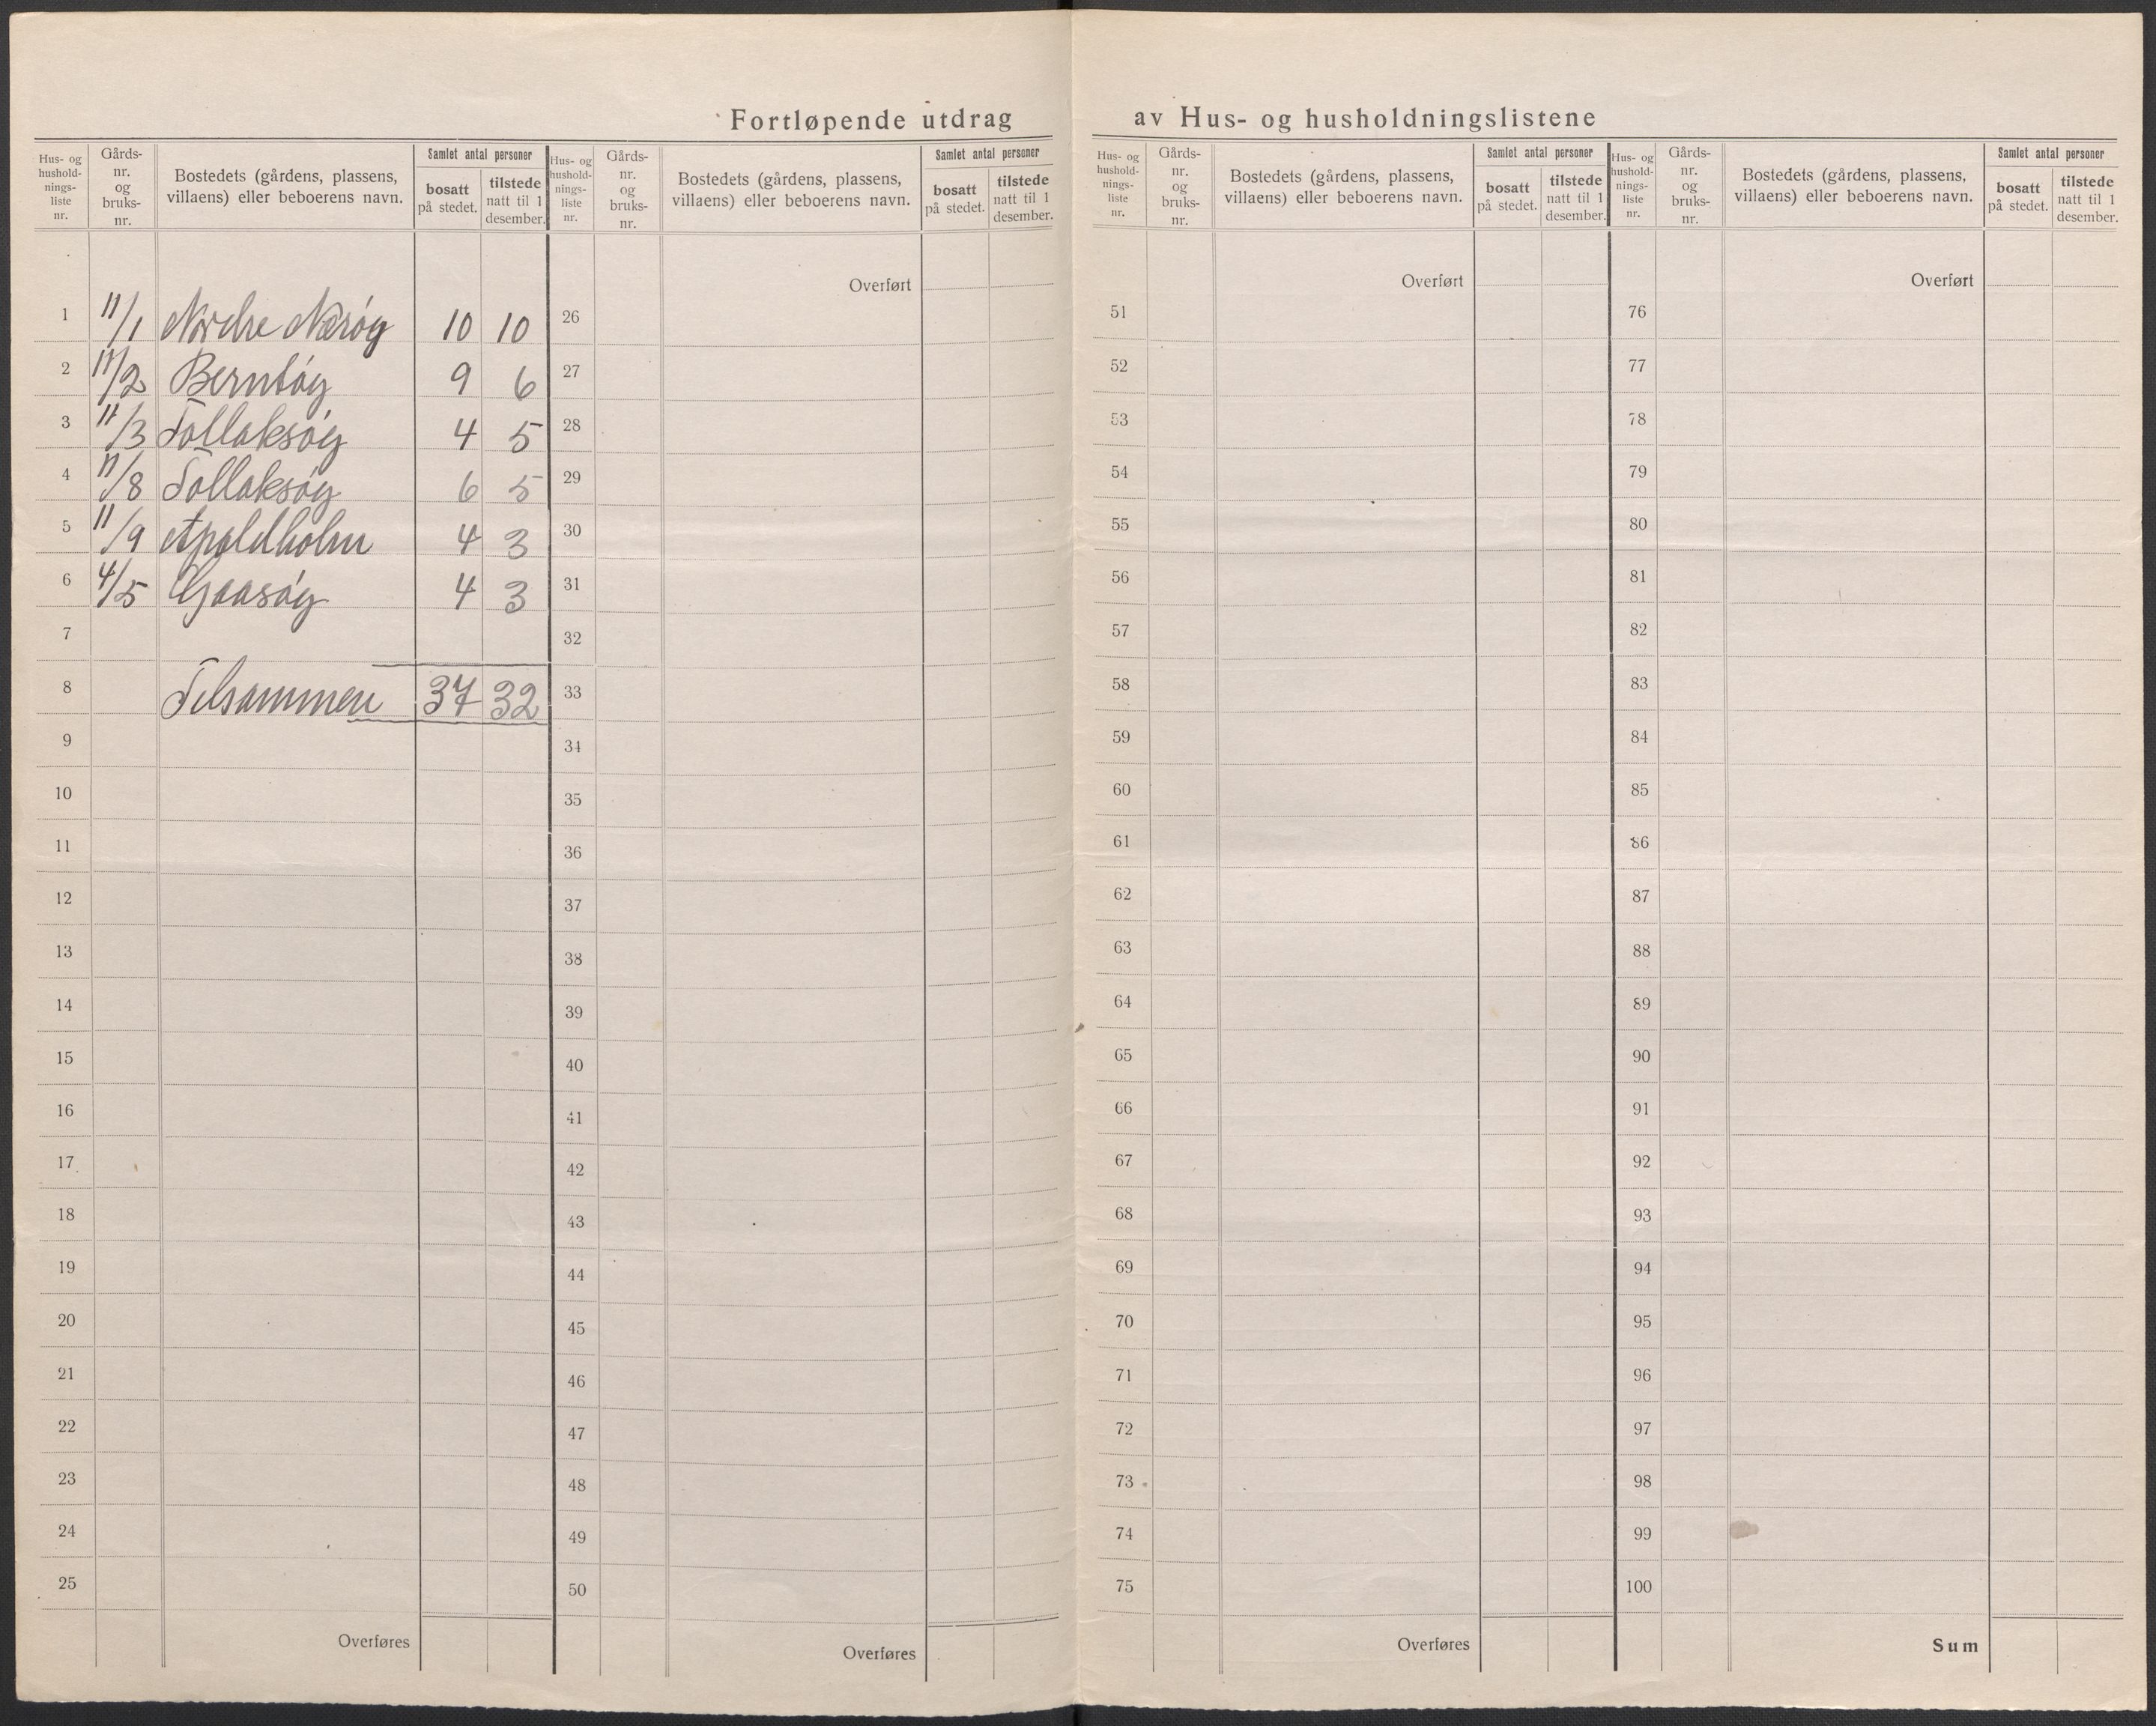 Fortløpende utdrag av Hus- og husholdningslistene
Hus- og husholdnings-liste nr. | Gårds-nr. og bruks-nr. | Bostedets (gårdens, plassens, villaens) eller beboerens navn. | Samlet antal personer | bosatt på stedet. | tilstede natt til 1 desember.
1 11/1 Nordre Nærøy 10 10
2 11/2 Berntøy 9 6
3 11/3 Tollaksøy 4 5
4 11/8 Tollaksøy 6 5
5 11/9 Apaldholm 4 3
6 4/5 Gaasøy 4 3
7
8 Tilsammen 37 32
9
10
11
12
13
14
15
16
17
18
19
20
21
22
23
24
25
Overføres
Hus- og husholdnings-liste nr. | Gårds-nr. og bruks-nr. | Bostedets (gårdens, plassens, villaens) eller beboerens navn. | Samlet antal personer | bosatt på stedet. | tilstede natt til 1 desember.
Overført
26
27
28
29
30
31
32
33
34
35
36
37
38
39
40
41
42
43
44
45
46
47
48
49
50
Overføres
Hus- og husholdnings-liste nr. | Gårds-nr. og bruks-nr. | Bostedets (gårdens, plassens, villaens) eller beboerens navn. | Samlet antal personer | bosatt på stedet. | tilstede natt til 1 desember.
Overført
51
52
53
54
55
56
57
58
59
60
61
62
63
64
65
66
67
68
69
70
71
72
73
74
75
Overføres
Hus- og husholdnings-liste nr. | Gårds-nr. og bruks-nr. | Bostedets (gårdens, plassens, villaens) eller beboerens navn. | Samlet antal personer | bosatt på stedet. | tilstede natt til 1 desember.
Overført
76
77
78
79
80
81
82
83
84
85
86
87
88
89
90
91
92
93
94
95
96
97
98
99
100
Sum